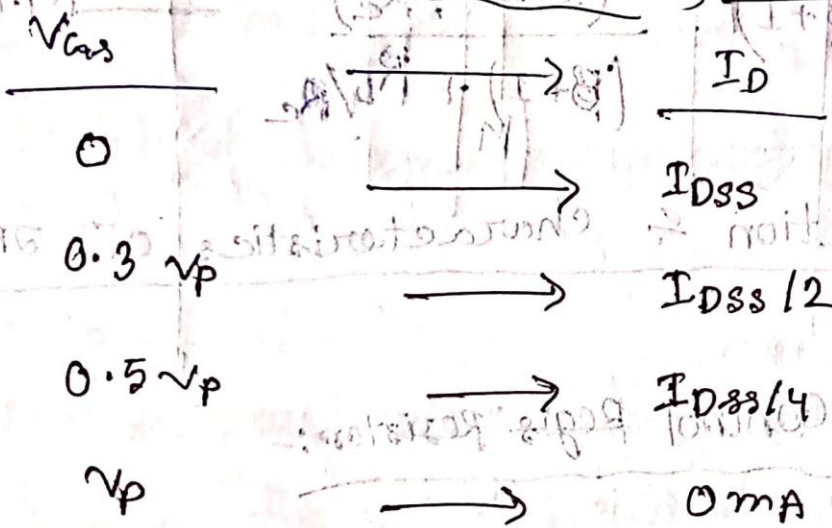 V_GS → I_D
0 → I_DSS
0.3 Vp → I_DSS/2
0.5 Vp → I_DSS/4
Vp → 0 mA